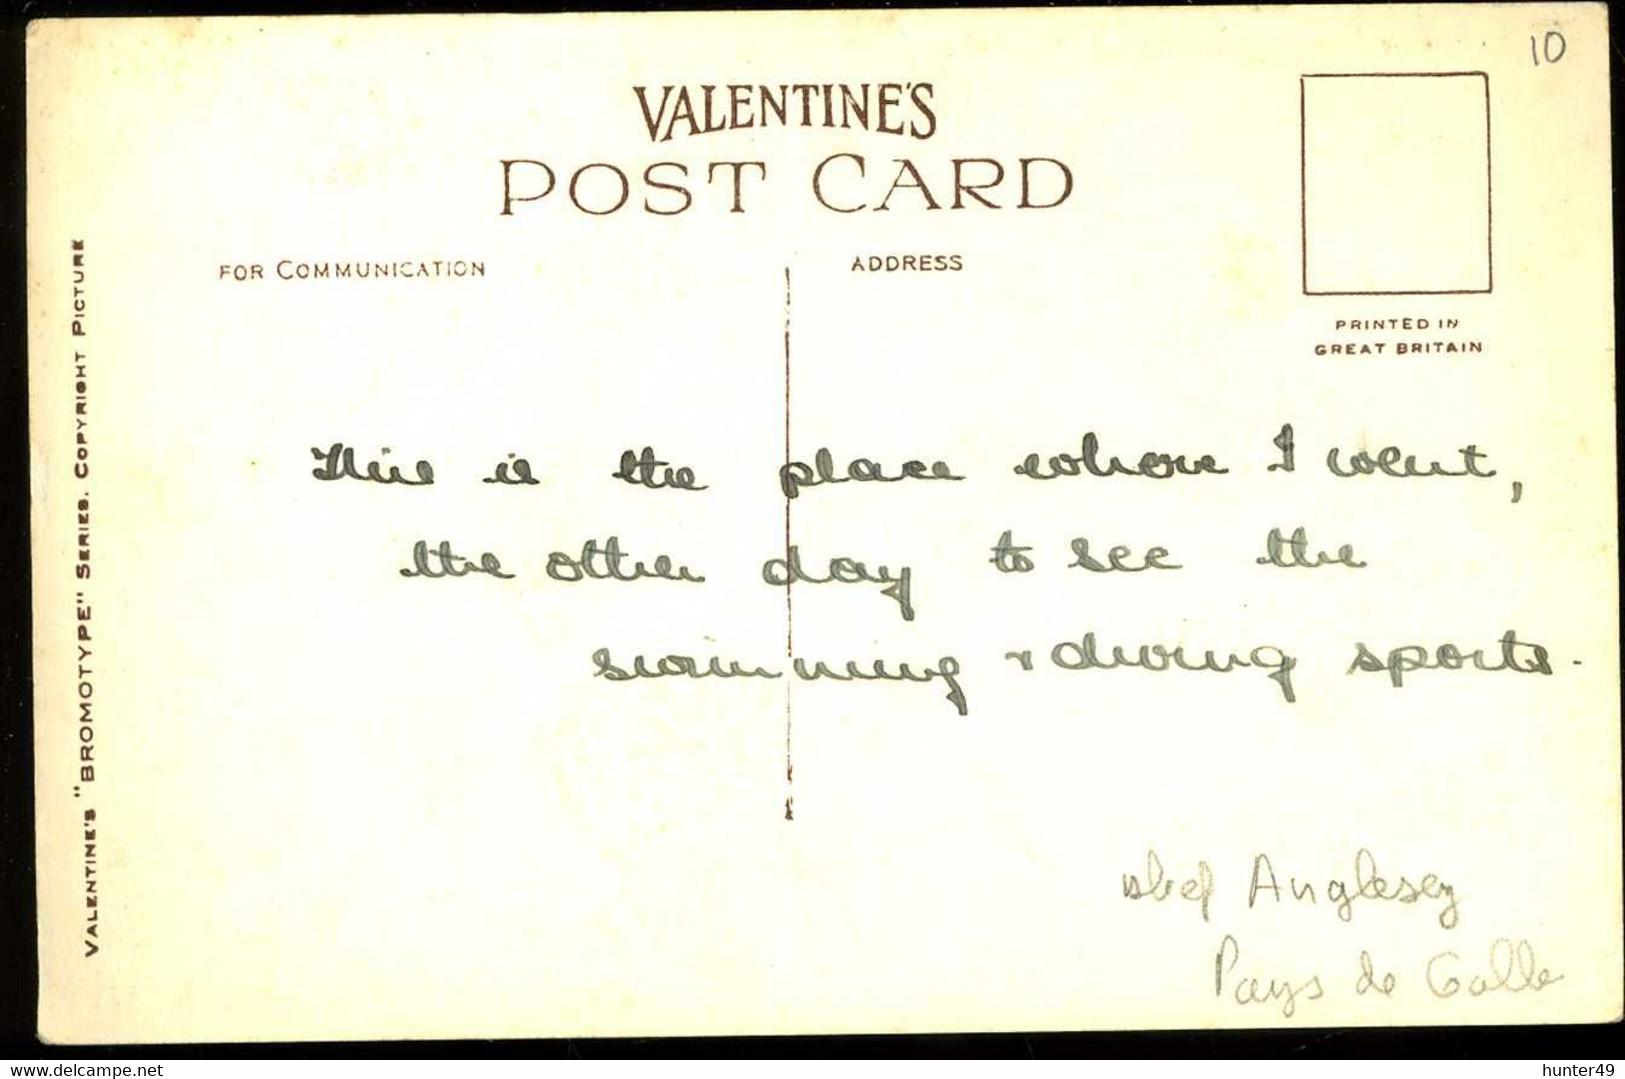 10
VALENTINE'S
POST CARD
FOR COMMUNICATION
ADDRESS
PRINTED IN
GREAT BRITAIN
VALENTINE'S "BROMOTYPE" SERIES. COPYRIGHT PICTURE
This is the place where I went,
the other day to see the
swimming & diving sports.
Anglesey
Pays de Galle
www.delcampe.net
hunter49